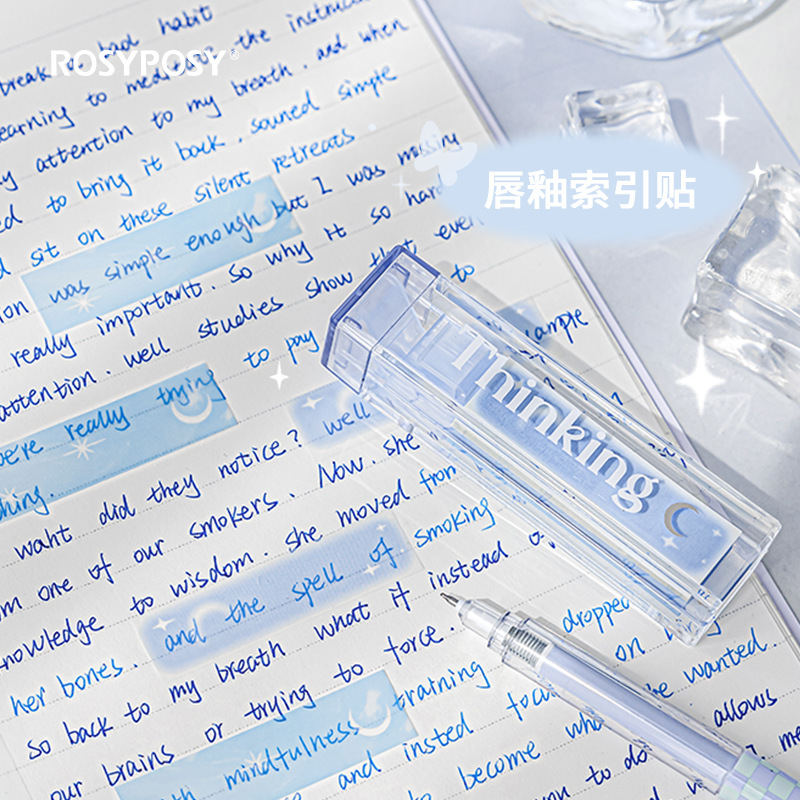 ROSYPOSY®
唇釉索引贴
Thinking
break a bad habit
learning to meditate. the instruction
attention to my breath. and when
to bring it back. souned simple
sit on these silent retreats
was simple enough but I was missing
really important. So why it so hard
attention. well studies show that even
we're really trying to pay
example
well
waht did they notice?
one of our smokers. Now. she
knowledge to wisdom. she moved from
her bones. and the spell of smoking
So back to my breath what it instead of
our brains or trying to force.
mindfulness training dropped on
and insted
to become
he wanted.
you to do
allows